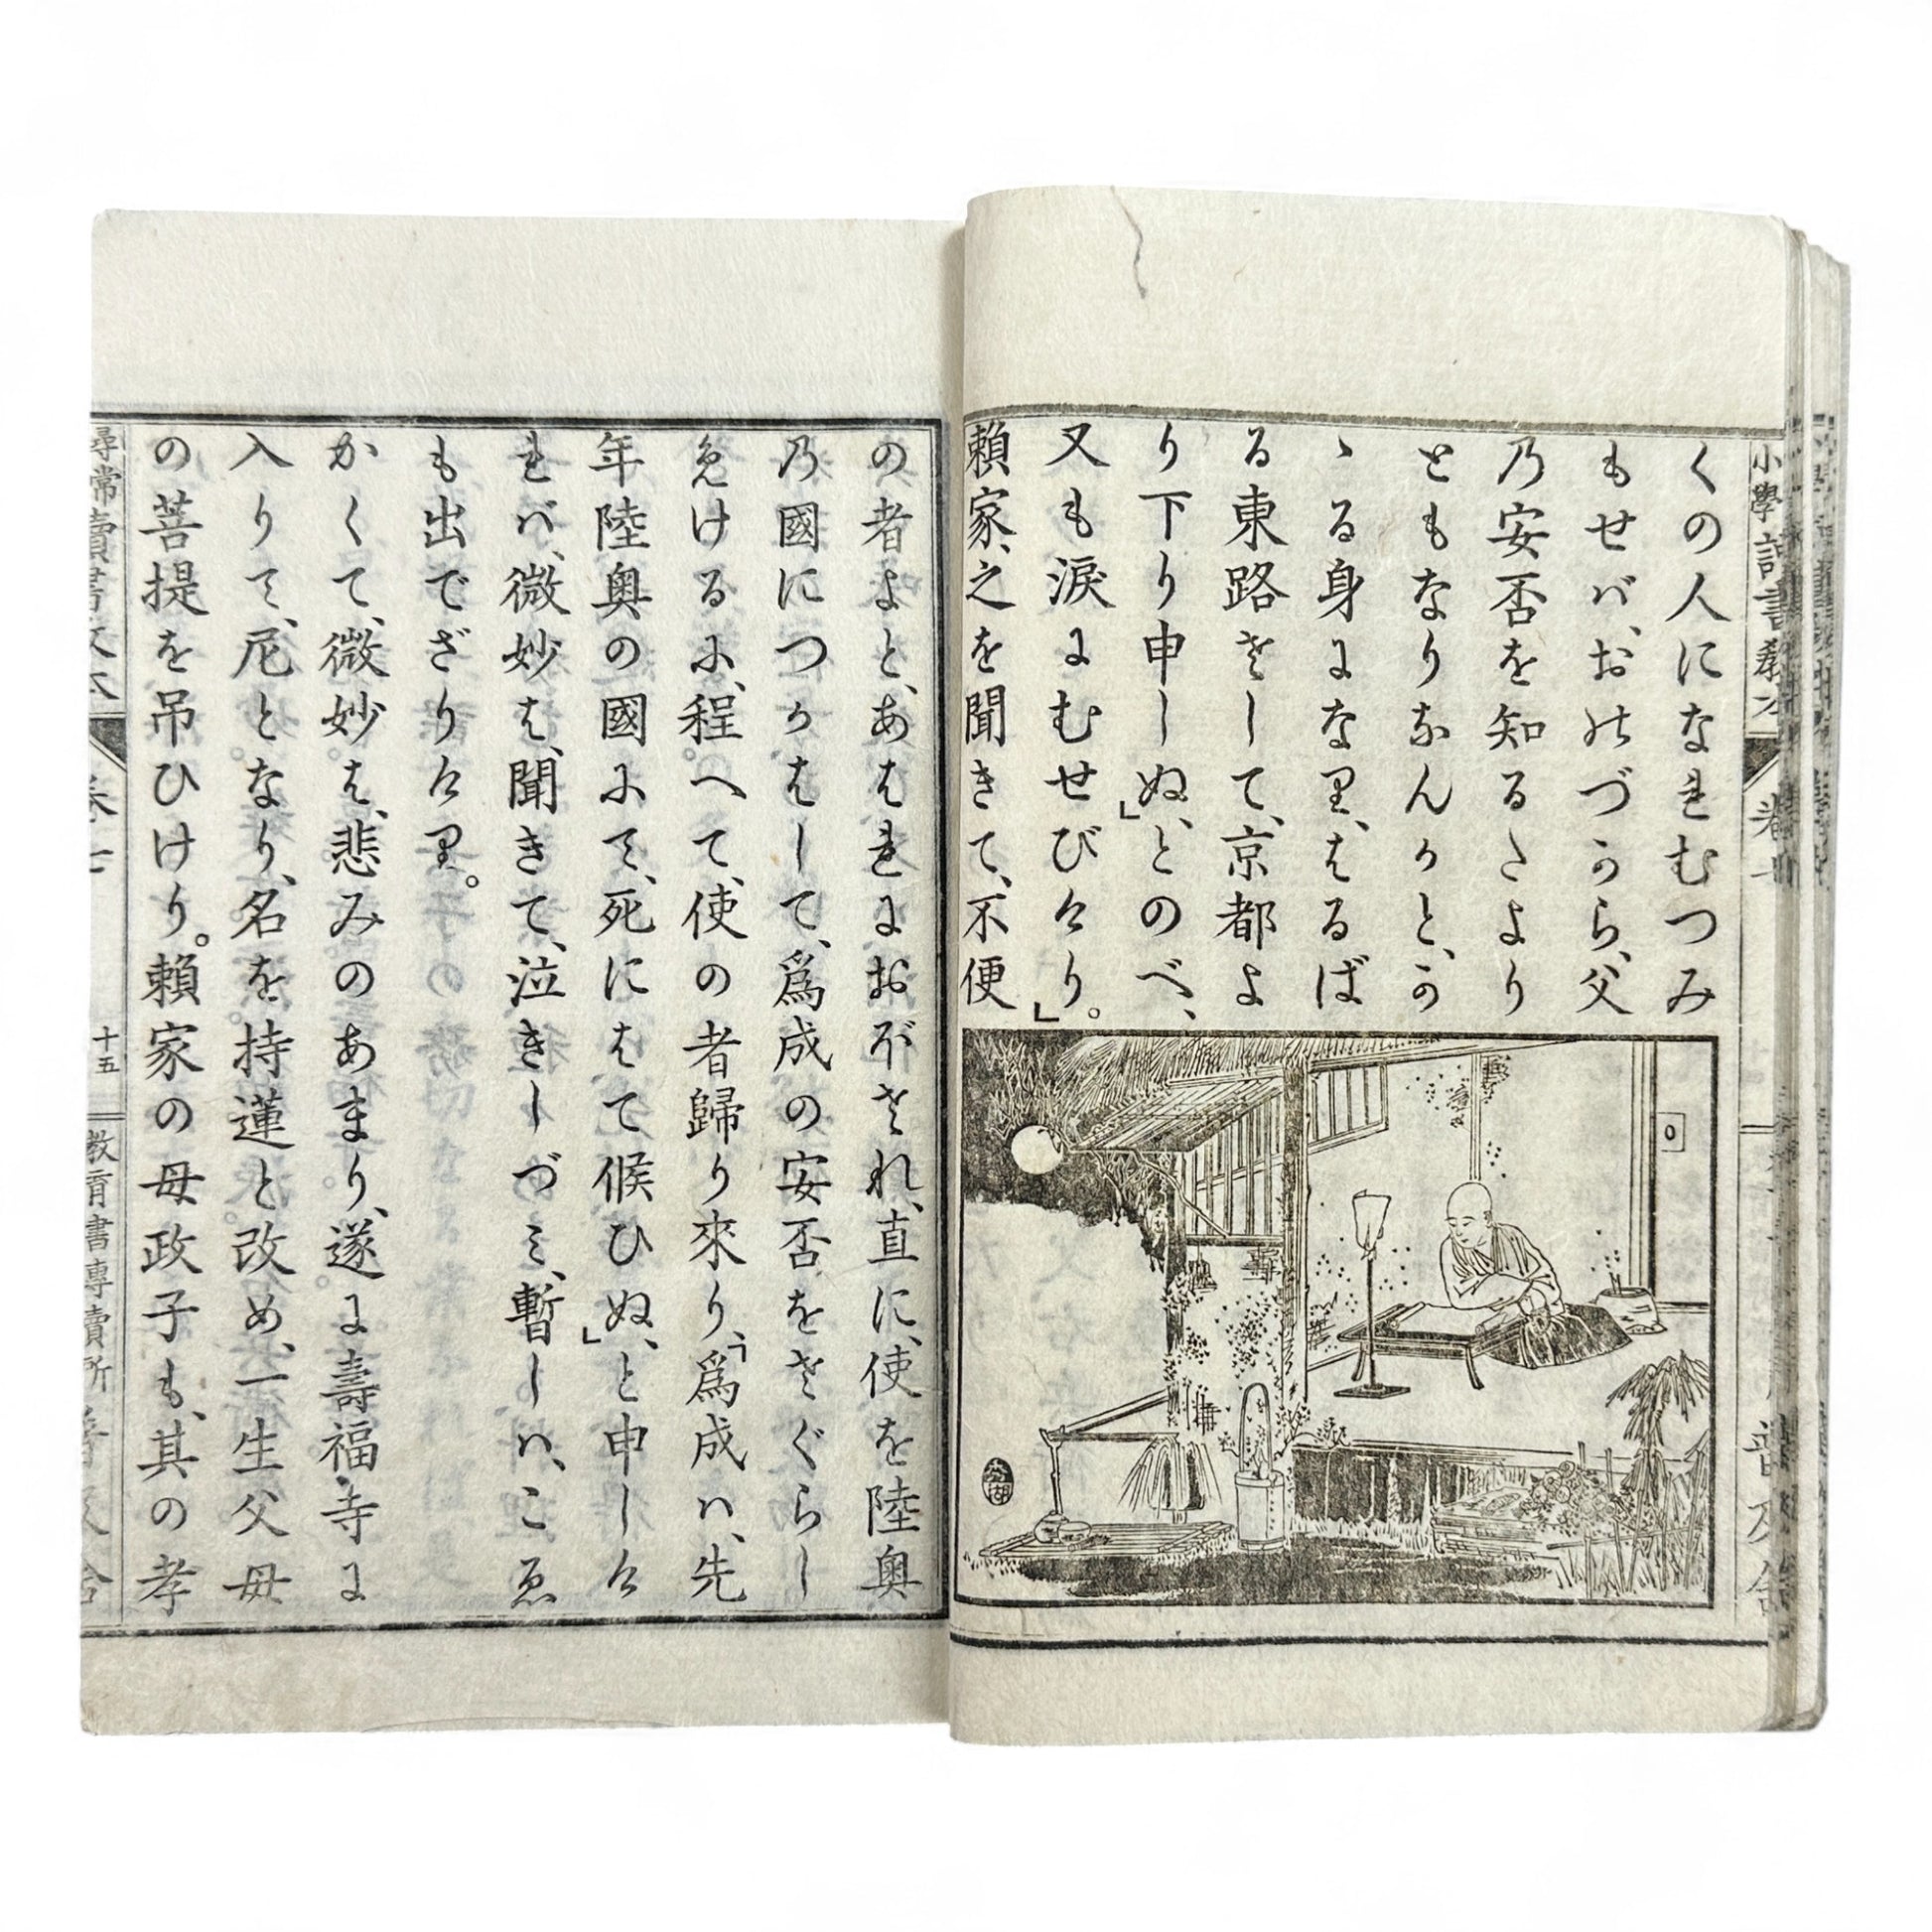 小學讀書教本
くの人になれむつみ
もせバ、おのづから、父
の安否を知るたより
ともなりなんかと、か
ゝる身になり、はるば
る東路さして、京都よ
り下り申しぬ、」とのべ、
又も涙にむせびけり。」
頼家、之を聞きて、不便
の者よと、あはれにおぼされ、直に、使を陸奥
の國につかはして、爲成の安否をさぐらし
めけるに、程へて、使の者歸り來り、「爲成ハ、先
年陸奥の國にて、死にはて候ひぬ、」と申しけ
れバ、微妙は、聞きて、泣きしづミ、暫しハ、こゑ
も出でざりけり。
かくて、微妙は、悲みのあまり、遂に壽福寺に
入りて、尼となり、名を、持蓮と改め、一生父母
の菩提を吊ひけり。頼家の母政子も、其の孝
卷七 十五 教育書專賣所 普及舍